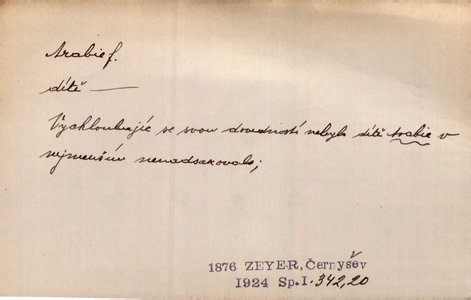 Arabie f.
dítě —
Vychloubajíc se svou dvorností nebylo dítě Arabie v
nejmenším nenadsazovalo;
1876 ZEYER, Černyšev
1924 Sp.I. 342,20